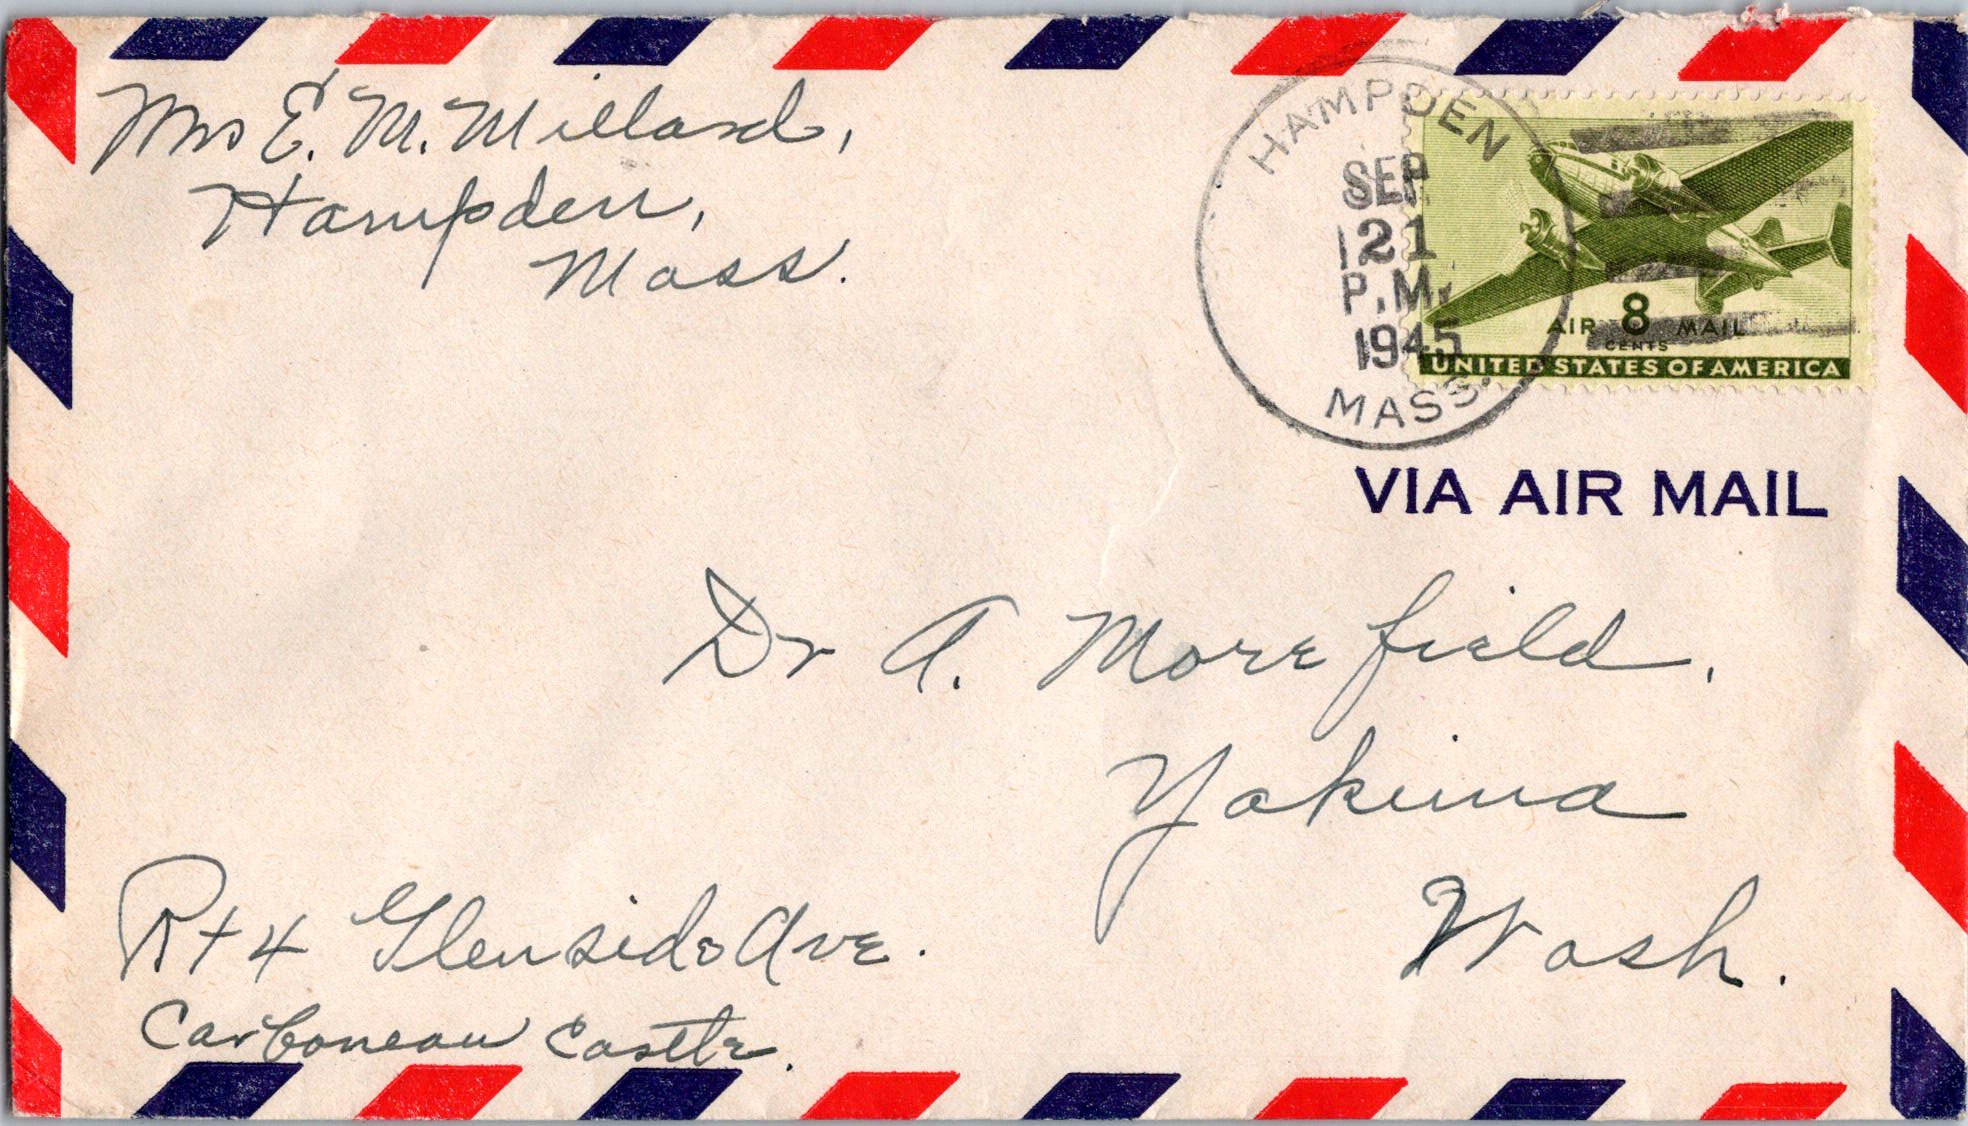 Mrs E. M. Millard,
Hampden,
Mass.
HAMPDEN
SEP
21
P.M.
1945
MASS.
AIR 8 MAIL
CENTS
UNITED STATES OF AMERICA
VIA AIR MAIL
Dr A. Morefield,
Yakima
Wash.
Rt 4 Glenside Ave.
Carboneau Castle.